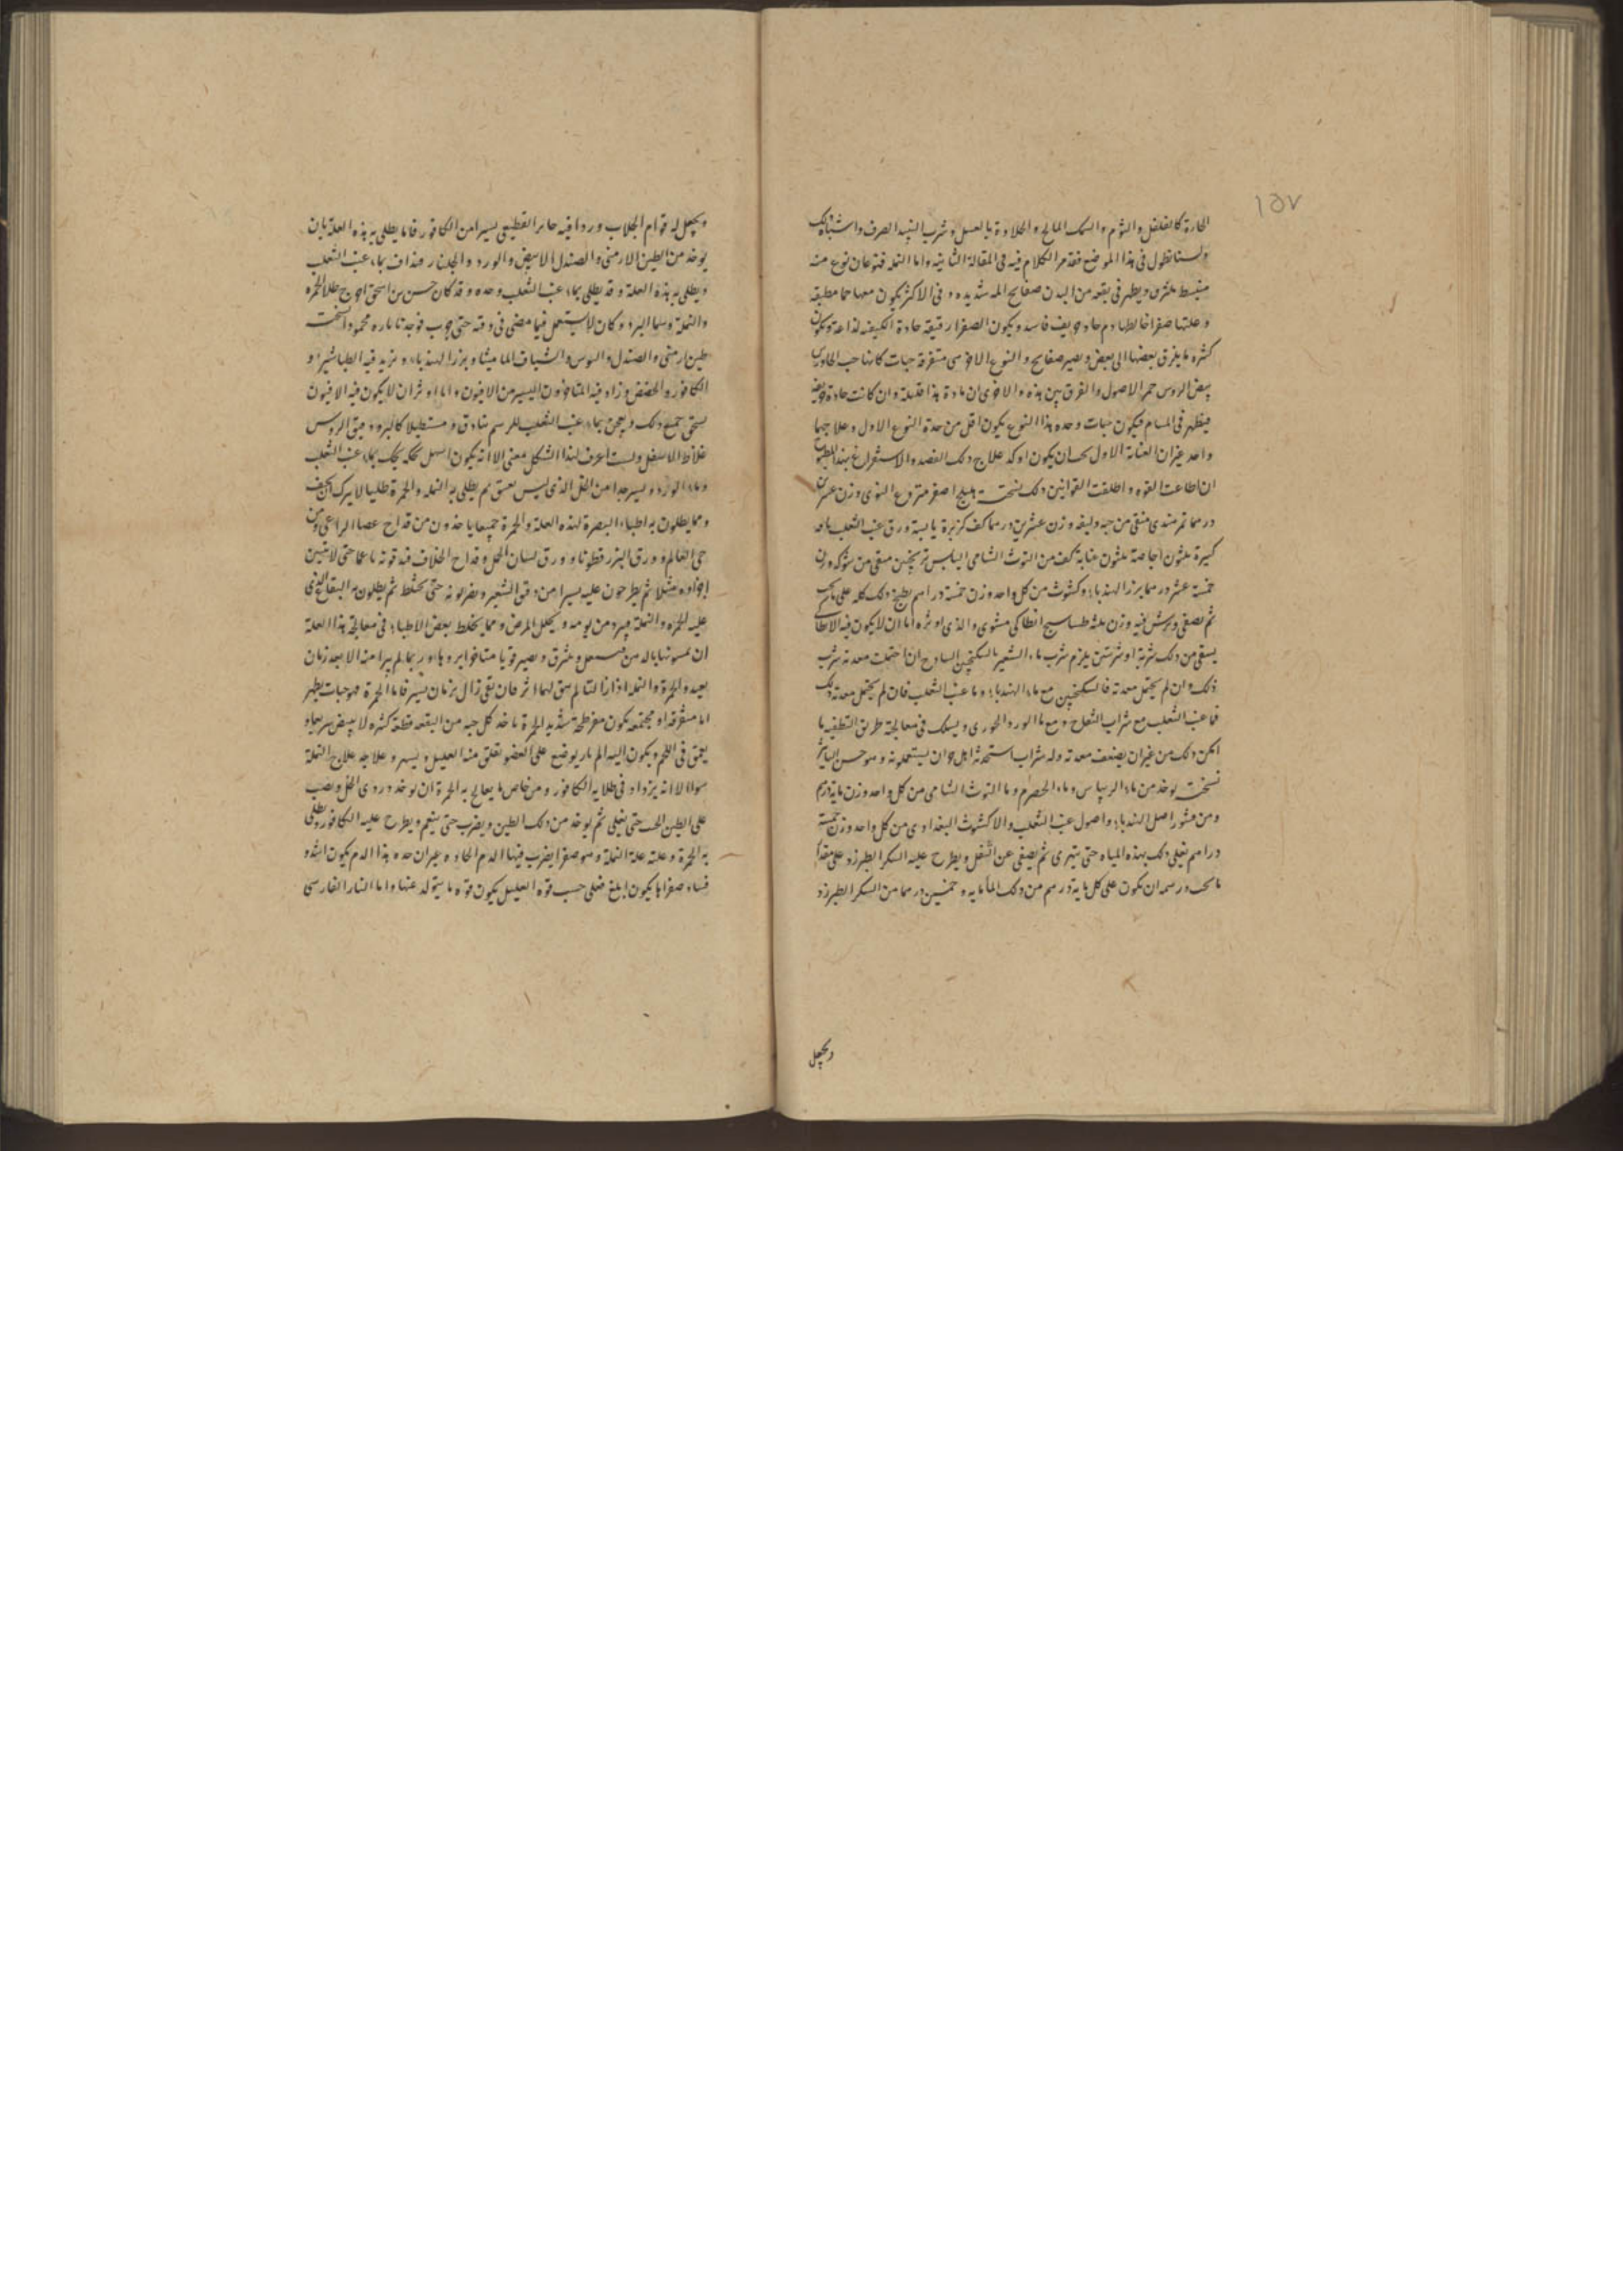 ١٥٧
الحارة كالفلفل والثوم والسمك المالح والحلاوة بالعسل وشرب النبيذ الصرف واشباه ذلك
ولسنا نطول فى هذا الموضع فقد مر الكلام فيه فى المقالة الثانية واما النملة فنوعان نوع منه
منبسط ويظهر فى بقعه من البدن صفايح المه شديده وفى الاكثر يكون معها حما مطبقه
وعلتها صفرا خالطها دم حاد حريف فاسد ويكون الصفرا رقيقة حادة الكيفيه لذاعة ويكون
كثره ما يفرق بعضها الى بعض ويصير صفايح والنوع الاخر هى متفرقة حبات كانها حب الجاورس
بيض الروس حمر الاصول والفرق بين هذه والاخرى ان مادة هذا قليلة وان كانت حادة حريفه
فيظهر فى المسام فيكون حبات وحده هذا النوع يكون اقل من حدة النوع الاول وعلاجهما
واحد غير ان العناية الاول يجب ان يكون اوكد علاج ذلك الفصد والاستفراغ بهذا المطبوخ
ان اطاعت القوه واطلقت القوانين ذلك نسخته هليلج اصفر منزوع النوى وزن عشرين
درهما تمر هندى منقى من حبه وليفه وزن عشرين درهما كف كزبرة يابسة ورق عنب الثعلب باقه
كبيرة ثلثون اجاصة ثلثون عنابة كف من التوث الشامى اليابس ترنجبين منقى من شوكه وزن
خمسة عشر درهما بزر الهندباء وكشوث من كل واحد وزن خمسة دراهم يطبخ ذلك كله على ما يجب
ثم يصفى ويمرس فيه وزن ثلثه طساسيج انطاكى مشوى والذى اوثره انا ان لا يكون فيه الانطاكى
يسقى من ذلك شربة او شربتين يلزم شرب ماء الشعير بالسكنجبين الساذج ان احتملت معدته شرب
ذلك وان لم يحتمل معدته فالسكنجبين مع ماء الهندباء وما عنب الثعلب فان لم يحتمل معدته ذلك
فما عنب الثعلب مع شراب التفاح ومع ما الورد الجورى ويسلك فى معالجة طريق التطفيه ما
امكن ذلك من غير ان يضعف معدته وله شراب استحدثه اهل جوان يستعملونه وهو حسن التاثير
نسخته يوخذ من ماء الريباس وماء الحصرم وما التوث الشامى من كل واحد وزن ماية درهم
ومن قشور اصل الهندباء واصول عنب الثعلب والاكشوث البغدادى من كل واحد وزن خمسة
دراهم يغلى ذلك بهذه المياه حتى يتهرى ثم يصفى عن الثفل ويطرح عليه السكر الطبرزد على مقدار
ما يجب ورسمه ان يكون على كل ماية درهم من ذلك الماء مايه وخمسين درهما من السكر الطبرزد
ويجعل
ويجعل له قوام الجلاب وردا فيه يسيرا من الكافور فاما يطلى به هذه العلة بان
يوخذ من الطين الارمنى والصندل الابيض والورد والجلنار فيداف بماء عنب الثعلب
ويطلى به هذه العلة وقد يطلى بماء عنب الثعلب وحده وقد كان حسن بن اسحق اخرج طلا للحمرة
والنملة وكان لا يستعمل فيما مضى فى وقته حتى جرب فوجدنا محمودا نسخته
طين ارمنى والصندل والبوش والشياف الماميثا وبزر الهندباء ونريد فيه الطباشير و
الكافور والحضض وزاد فيه المتاخرون اليسير من الافيون وانا اوثر ان لا يكون فيه الافيون
يسحق جميع ذلك ويعجن بماء عنب الثعلب للرسم بنادق مستطيلا كالبرد دقيق الروس
غلاظ الاسفل ولست اعرف لهذا الشكل معنى الا انه يكون اسهل يحك بماء عنب الثعلب
وماء الورد ويسير جدا من الخل الذى ليس بعتيق ثم يطلى به النملة والحمرة طليا لا يترك ان يجف
ومما يطلون به اطباء البصرة لهذه العلة والحمرة جميعا ياخذون من قداح عصا الراعى ومن
حى العالم وورق البزر قطونا وورق لسان الحمل وقداح الخلاف فيدقونه ناعما حتى لا يتبين
اجزاوه مثلا ثم يطرحون عليه يسيرا من دقيق الشعير ويضربونه حتى يختلط ثم يطلون به البقاع الذى
عليه الحمره والنملة فيبرد من يومه ويحلل المرض ومما يخلط بعض الاطباء فى معالجة هذا العلة
ان ويصير قوبا متاخرا وربما لم يبرا منه الا بعد زمان
بعيد والحمرة والنملة اذا زالتا لم يبق لهما اثر فان بقى زال بزمان يسير فاما الجمرة فهو حبات يظهر
اما متفرقه او مجتمعه يكون مفرطحة شديد الحمرة ياخذ كل حبه من البقعه قطعة كثيره لا يبيض سريعا و
يعمق فى اللحم ويكون اليه الم نار يوضع على العضو يقلق منه العليل ويسهر وعلاجه علاج النملة
سوا الا انه يزداد فى طلايه الكافور ومن خاص ما يعالج به الجمرة ان يوخذ دردى الخل ويصب
على الطين الحر حتى يغلى ثم يوخذ من ذلك الطين ويضرب حتى ينعم ويطرح عليه الكافور ويطلى
به الجمرة وعلته علة النملة وهو صفرا يضرب فيها الدم الحاد وغير ان حده هذا الدم يكون اشد و
فساد صفراها يكون ابلغ فعلى حسب قوه العليل يكون قوه ما يتولد عنها واما النار الفارسى